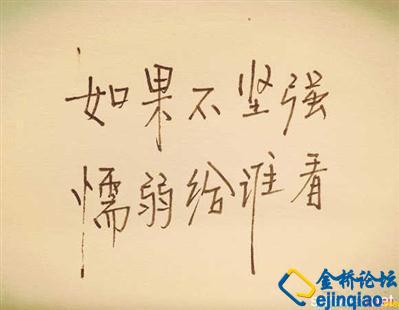 如果不坚强
懦弱给谁看
金桥论坛
ejinqiao